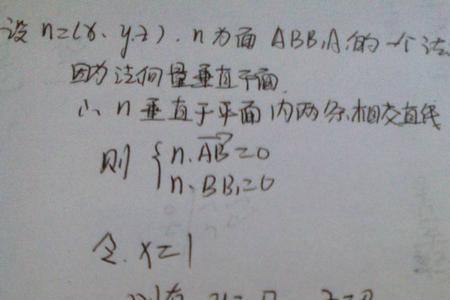 设 n=(x、y,z). n为面 ABB₁A₁的一个法
因为法向量垂直平面
∴ n垂直于平面内两条相交直线
则 { n·AB=0
n·BB₁=0
令 x=1